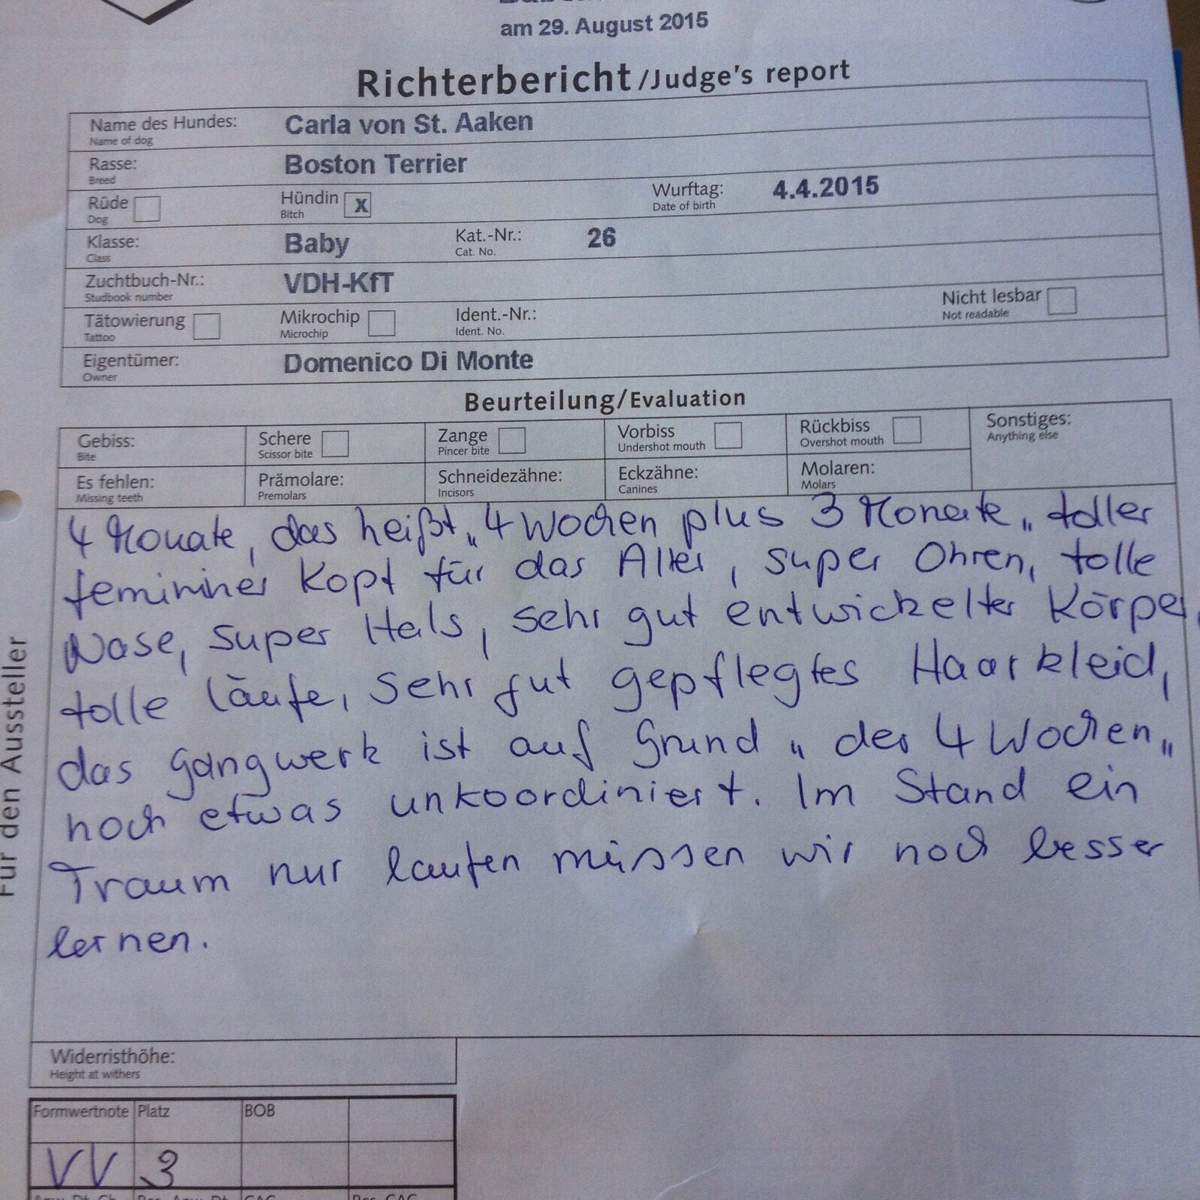 am 29. August 2015
Richterbericht/Judge's report
Name des Hundes: Carla von St. Aaken
Name of dog
Rasse: Boston Terrier
Breed
Rüde Hündin X Wurftag: 4.4.2015
Dog Bitch Date of birth
Klasse: Baby Kat.-Nr.: 26
Class Cat. No.
Zuchtbuch-Nr.: VDH-KfT
Studbook number
Tätowierung Mikrochip Ident.-Nr.: Nicht lesbar
Tattoo Microchip Ident. No. Not readable
Eigentümer: Domenico Di Monte
Owner
Beurteilung/Evaluation
Gebiss: Schere Zange Vorbiss Rückbiss Sonstiges:
Bite Scissor bite Pincer bite Undershot mouth Overshot mouth Anything else
Es fehlen: Prämolare: Schneidezähne: Eckzähne: Molaren:
Missing teeth Premolars Incisors Canines Molars
4 Monate, das heißt „4 Wochen plus 3 Monate„ toller
femininer Kopf für das Alter, super Ohren, tolle
Nase, super Hals, sehr gut entwickelter Körper,
tolle Läufe, sehr gut gepflegtes Haarkleid,
das Gangwerk ist auf Grund „der 4 Wochen„
noch etwas unkoordiniert. Im Stand ein
Traum nur laufen müssen wir noch besser
lernen.
Für den Aussteller
Widerristhöhe:
Height at withers
Formwertnote Platz BOB
VV 3